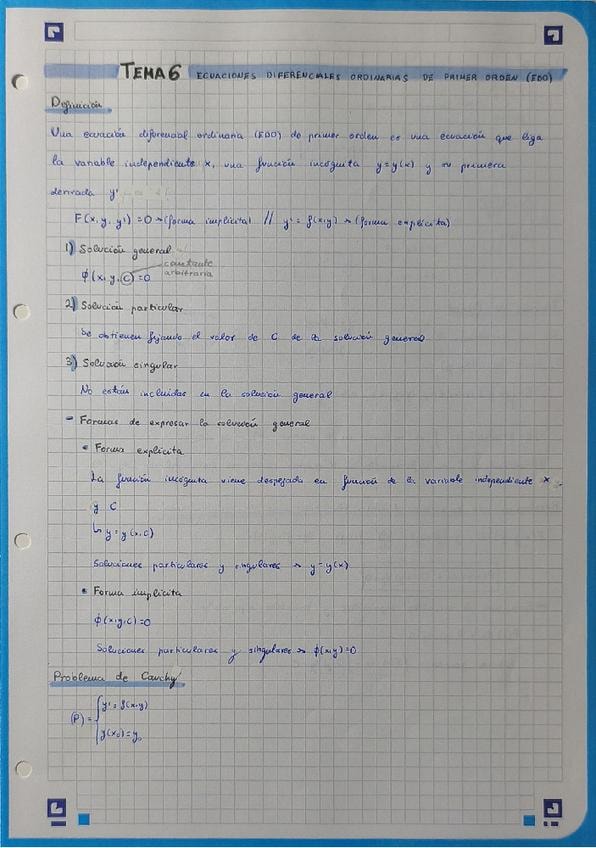 TEMA 6 ECUACIONES DIFERENCIALES ORDINARIAS DE PRIMER ORDEN (EDO)
Definición
Una ecuación diferencial ordinaria (EDO) de primer orden es una ecuación que liga
la variable independiente x, una función incógnita y=y(x) y su primera
derivada y'
F(x,y,y')=0 → (forma implícita) // y'=f(x,y) → (forma explícita)
1) Solución general
ϕ(x,y,C)=0 constante
arbitraria
2) Solución particular
Se obtienen fijando el valor de C de la solución general
3) Solución singular
No están incluidas en la solución general
- Formas de expresar la solución general
• Forma explícita
La función incógnita viene despejada en función de la variable independiente x
y C
↳ y=y(x,C)
Soluciones particulares y singulares → y=y(x)
• Forma implícita
ϕ(x,y,C)=0
Soluciones particulares y singulares → ϕ(x,y)=0
Problema de Cauchy
(P)={ y'=f(x,y)
y(x₀)=y₀